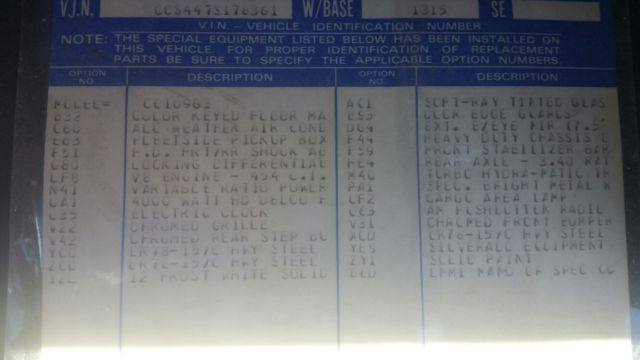 V.I.N. CCS447S178361 W/BASE 1315 SE
V.I.N. – VEHICLE IDENTIFICATION NUMBER
NOTE: THE SPECIAL EQUIPMENT LISTED BELOW HAS BEEN INSTALLED ON
THIS VEHICLE. FOR PROPER IDENTIFICATION OF REPLACEMENT
PARTS BE SURE TO SPECIFY THE APPLICABLE OPTION NUMBERS.
OPTION NO. DESCRIPTION OPTION NO. DESCRIPTION
MODEL= CC10903 AC1 SOFT-RAY TINTED GLAS
B32 COLOR KEYED FLOOR MA B93 DOOR EDGE GUARDS
C60 ALL-WEATHER AIR COND EXT. MIR (7.5"
E63 FLEETSIDE PICKUP BOX F44 HEAVY DUTY CHASSIS E
F51 H.D. FRT/RR SHOCK AB F59 FRONT STABILIZER BAR
LOCKING DIFFERENTIAL REAR AXLE - 3.40 RAT
V8 ENGINE - 454 C.I. M40 TURBO HYDRA-MATIC TR
N41 VARIABLE RATIO POWER PA1 SPEC. BRIGHT METAL W
UA1 4000 WATT HD DELCO CARGO AREA LAMP
U35 ELECTRIC CLOCK U63 AM PUSHBUTTON RADIO
V22 CHROMED GRILLE V31 CHROMED FRONT BUMPER
V42 CHROMED REAR STEP BU LR78-15/C HWY STEEL
LR78-15/C HWY STEEL SILVERADO EQUIPMENT
LR78-15/C HWY STEEL ZY1 SOLID PAINT
12L 12 FROST WHITE SOLID